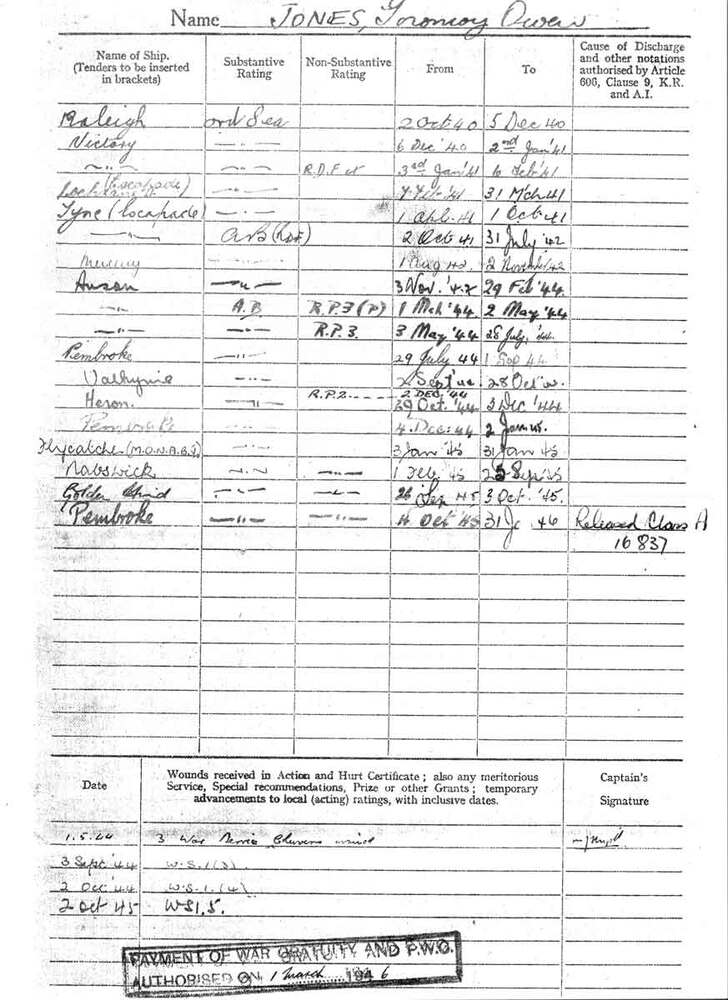 Name JONES, Owen
Name of Ship. (Tenders to be inserted in brackets) Substantive Rating Non-Substantive Rating From To Cause of Discharge and other notations authorised by Article 606, Clause 9, K.R. and A.I.
Raleigh ord Sea 2 Oct 40 5 Dec 40
Victory —..— 6 Dec '40 2nd Jan '41
—..— —..— R.D.F 3rd Jan '41 6 Feb '41
(Escapade) —..— 7 Feb '41 31 Mch 41
Tyne (Escapade) —..— 1 Apl 41 1 Oct 41
—..— AB (RDF) 2 Oct 41 31 July '42
Mercury —..— 1 Aug 42 2 November 42
Anson —..— 3 Nov. '42 29 Feb '44
—..— A.B R.P.3 (P) 1 Mch '44 2 May '44
—..— —..— R.P.3. 3 May '44 28 July, '44
Pembroke —..— 29 July 44 1 Sep 44
Valkyrie —..— 2 Sept 28 Oct
Heron. —..— R.P.2. 2 DEC '44 29 Oct. '44 3 Dec '44
Pembroke —..— 4 Dec: 44 2 Jan 45.
Flycatcher (M.O.N.A.B.5) —..— 3 Jan '45 31 Jan 45
Nabswick —..— —..— 1 Feb 45 25 Sep '45
Golden Hind —..— —..— 26 Sep 45 3 Oct. '45.
Pembroke —..— —..— 4 Oct '45 31 46 Released Class A
16 837
Date Wounds received in Action and Hurt Certificate; also any meritorious Service, Special recommendations, Prize or other Grants; temporary advancements to local (acting) ratings, with inclusive dates. Captain's Signature
1.5.44 3 War Service Chevrons
3 Sept '44 W.S.1(3)
2 Dec '44 W.S.1.(4)
2 Oct 45 WS1.5.
PAYMENT OF WAR GRATUITY AND P.W.C.
AUTHORISED ON 1 March 1946